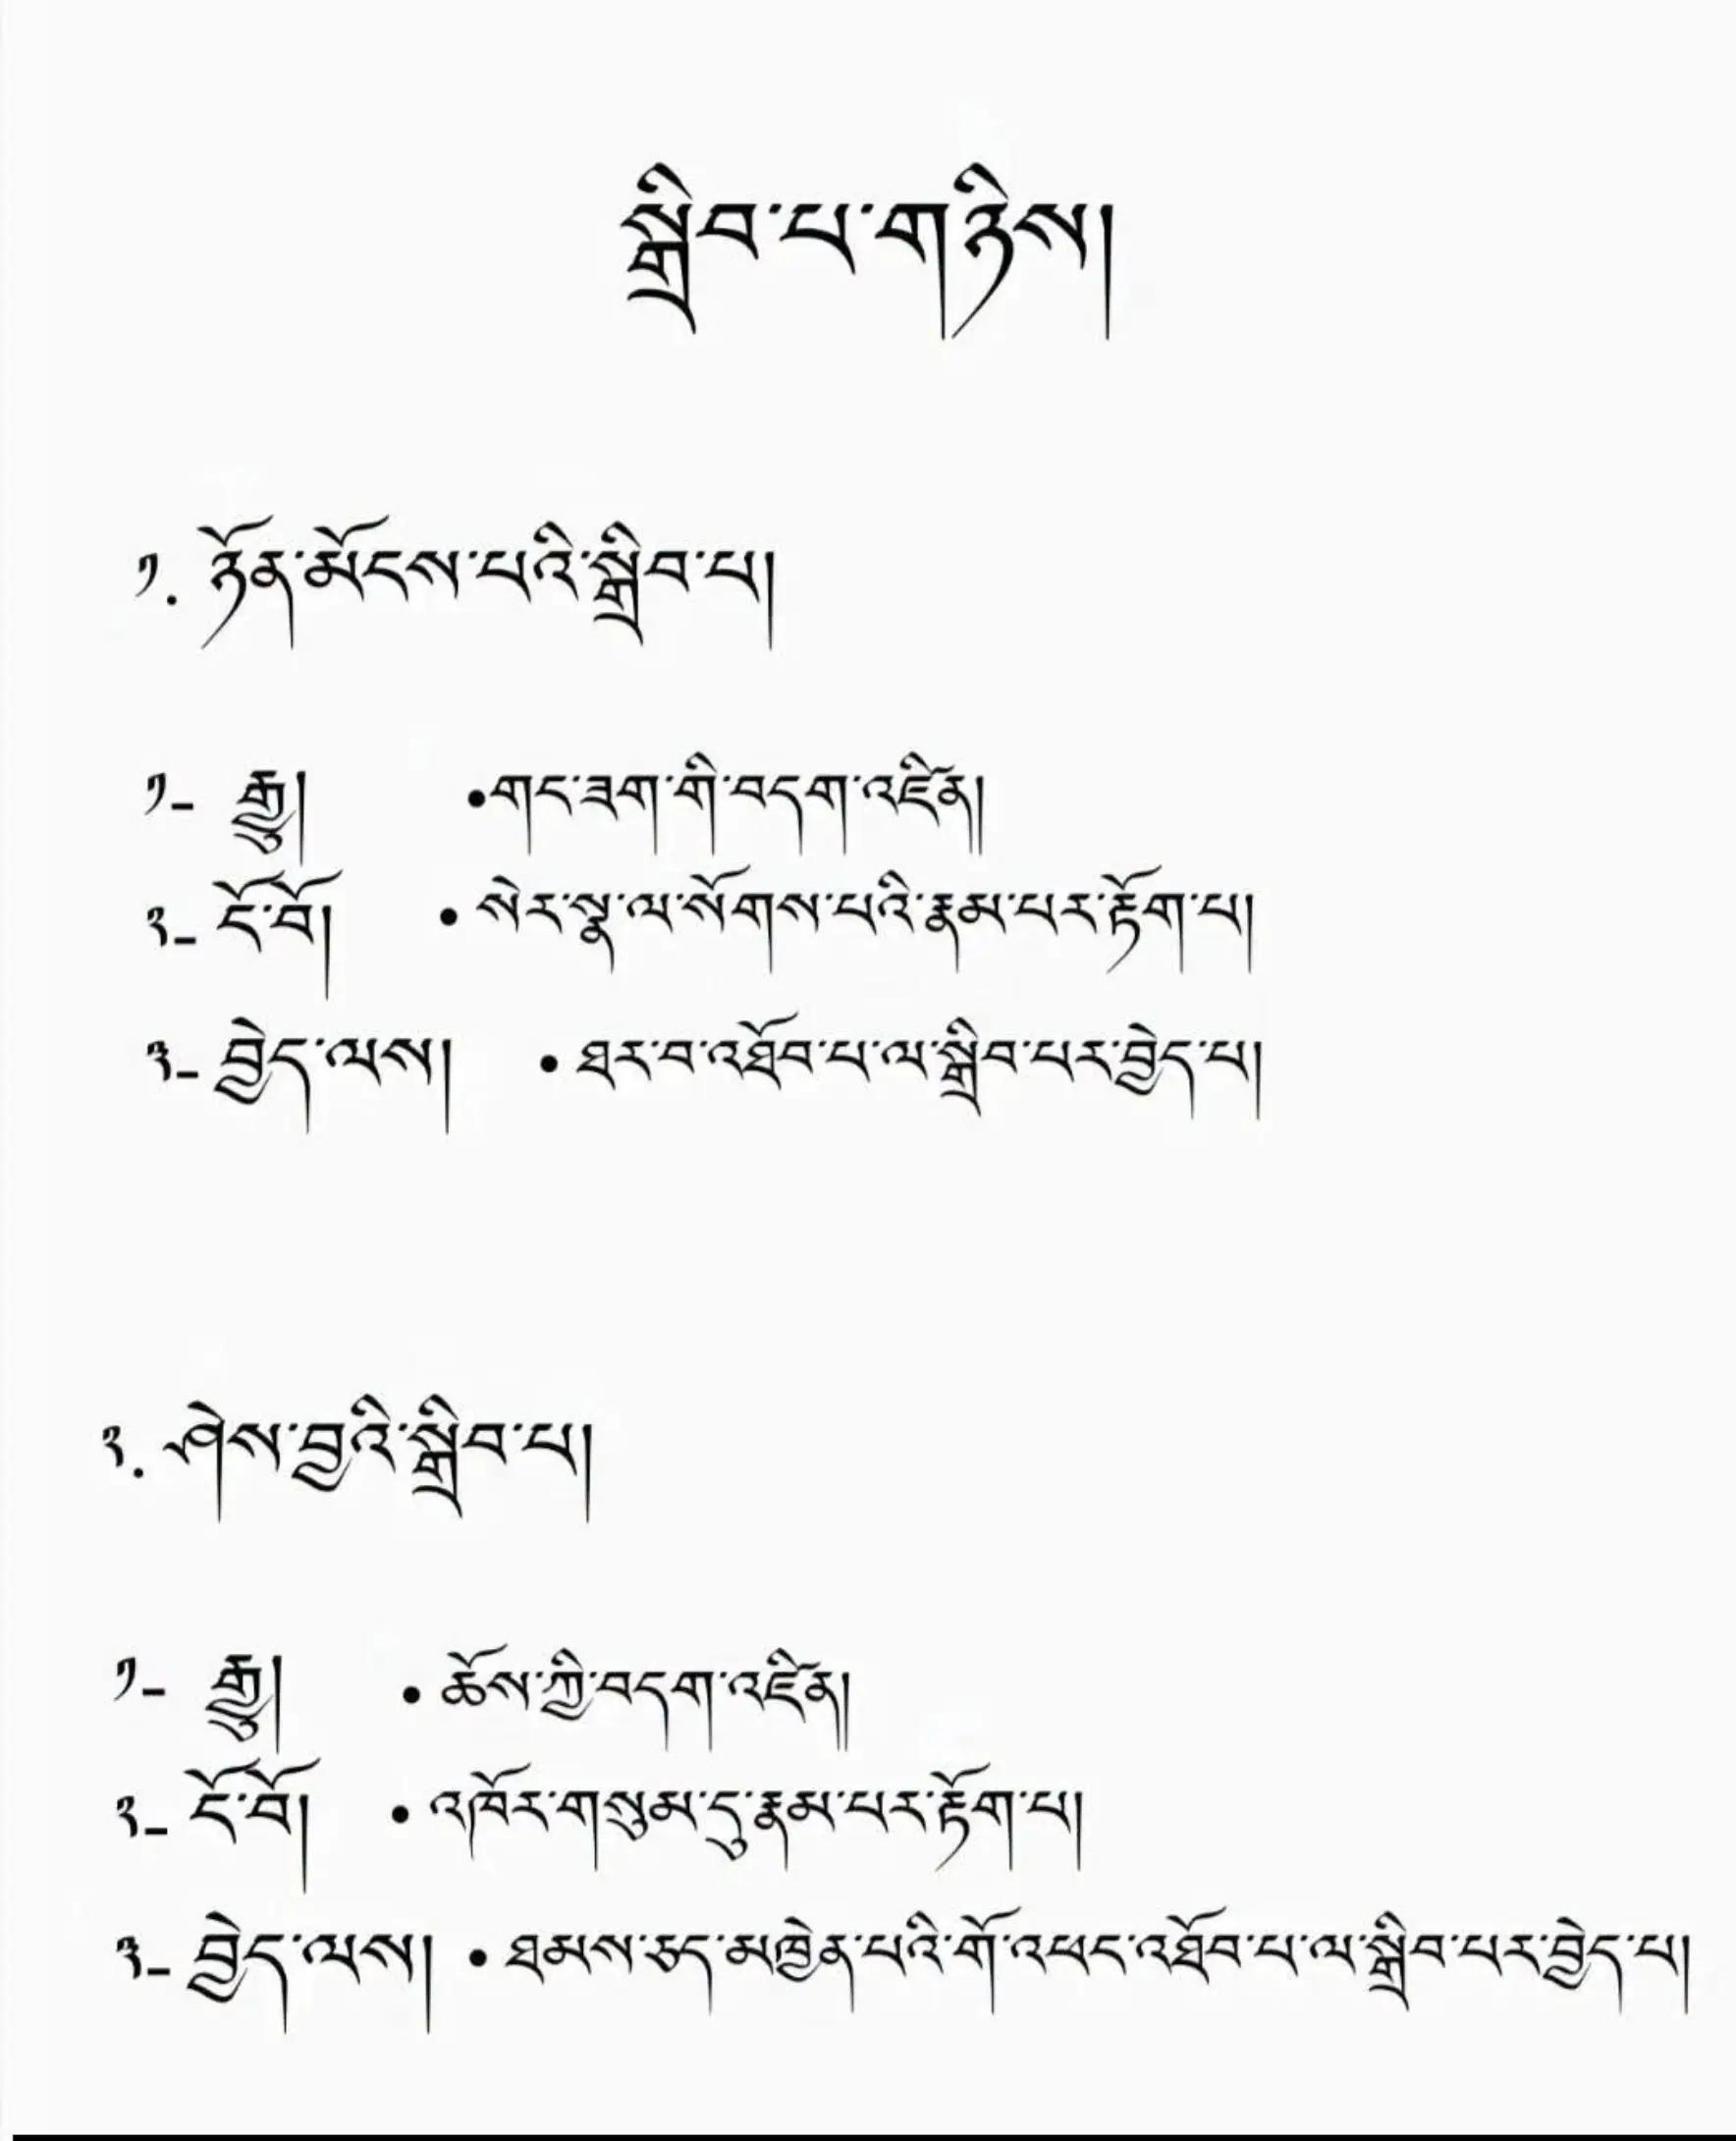 སྒྲིབ་པ་གཉིས།
༡. ཉོན་མོངས་པའི་སྒྲིབ་པ།
༡- རྒྱུ། •གང་ཟག་གི་བདག་འཛིན།
༢- ངོ་བོ། • སེར་སྣ་ལ་སོགས་པའི་རྣམ་པར་རྟོག་པ།
༣- བྱེད་ལས། • ཐར་བ་འཐོབ་པ་ལ་སྒྲིབ་པར་བྱེད་པ།
༢. ཤེས་བྱའི་སྒྲིབ་པ།
༡- རྒྱུ། • ཆོས་ཀྱི་བདག་འཛིན།
༢- ངོ་བོ། • འཁོར་གསུམ་དུ་རྣམ་པར་རྟོག་པ།
༣- བྱེད་ལས། • ཐམས་ཅད་མཁྱེན་པའི་གོ་འཕང་འཐོབ་པ་ལ་སྒྲིབ་པར་བྱེད་པ།